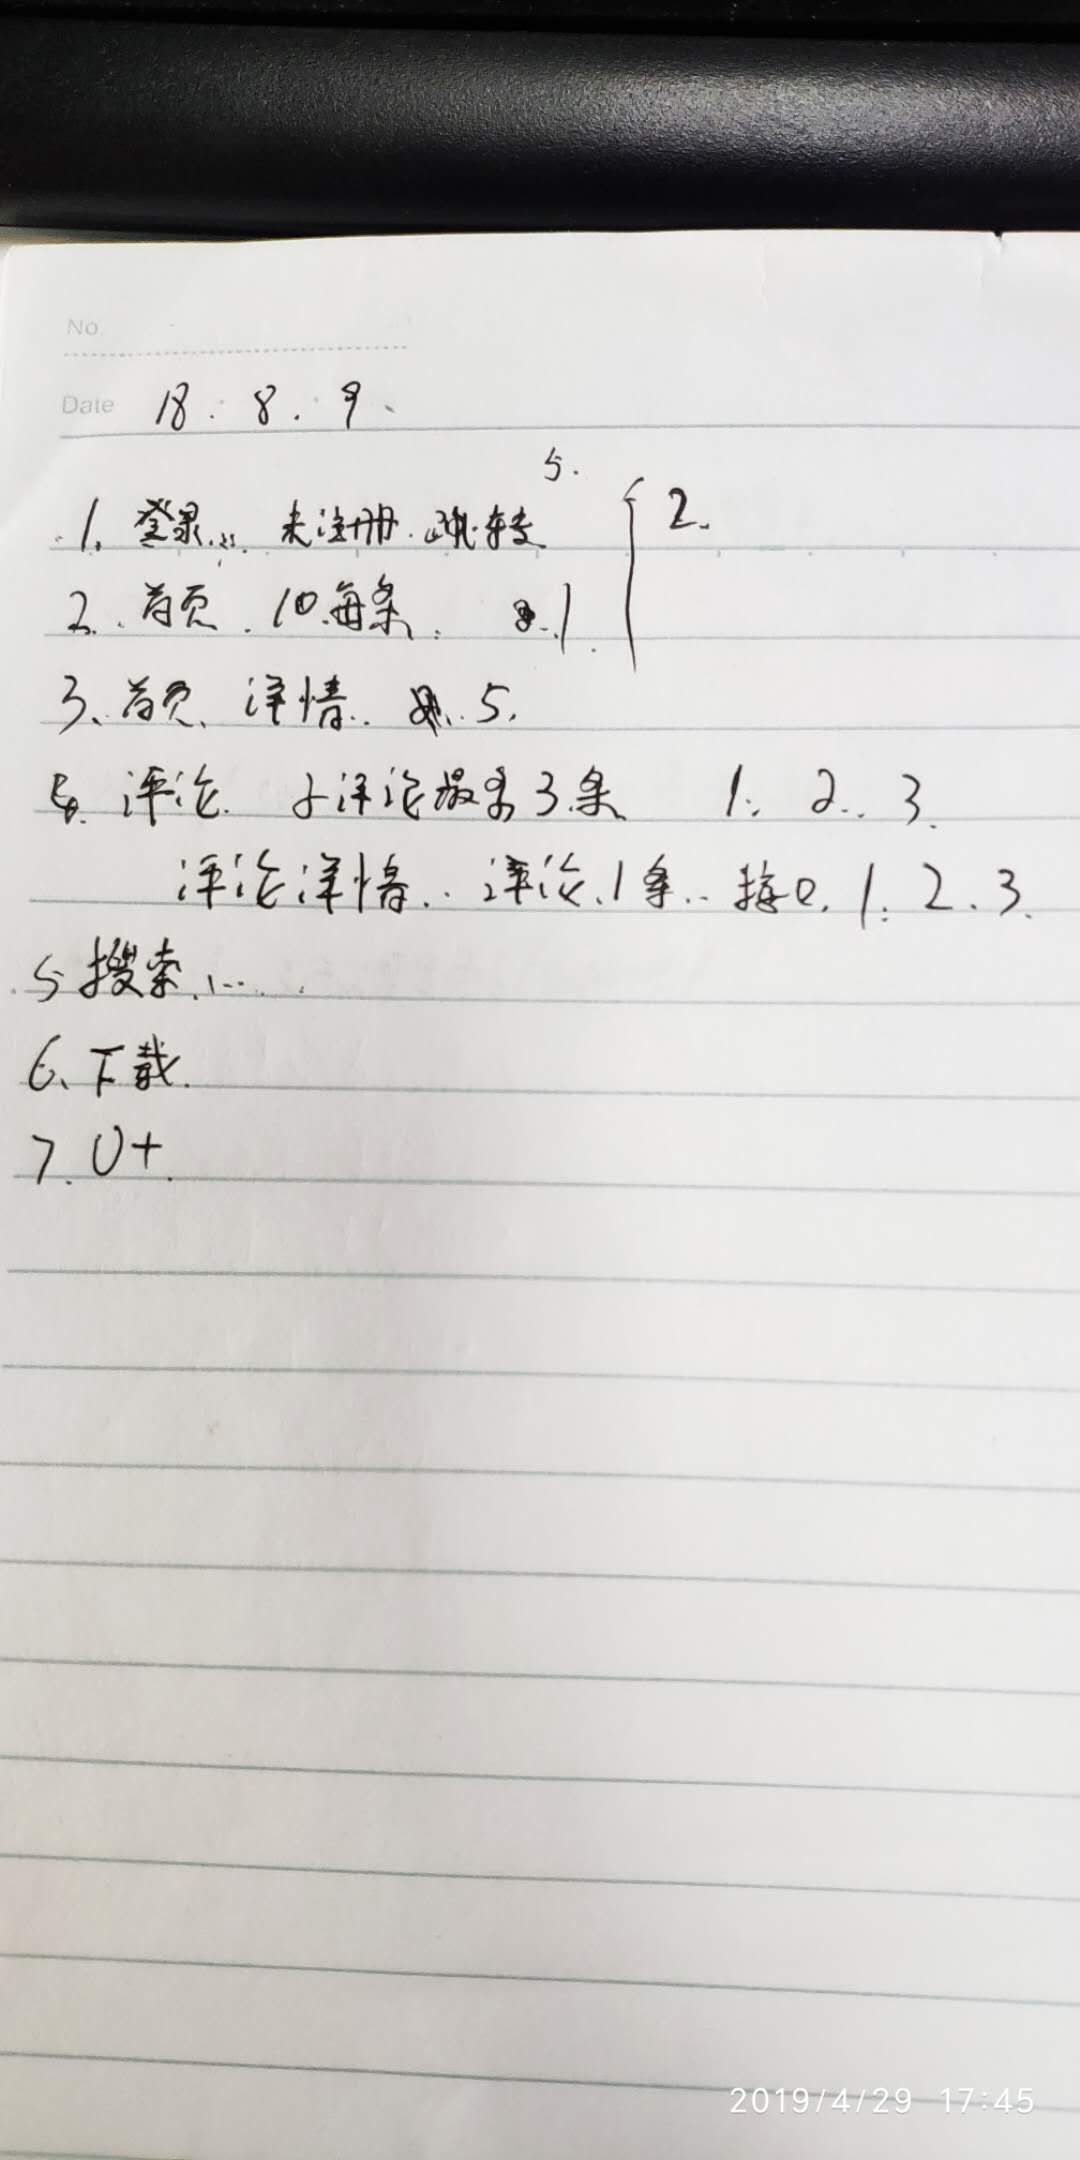 No.
Date 18. 8. 9.
5.
1. 登录... 未注册. 跳转 2.
2. 首页. 10.每条. 1.
3、首页、详情.. 5.
评论. 子评论最多3条 1. 2.. 3.
评论详情.. 评论.1条.. 接口. 1. 2. 3.
5 搜索....
6、下载.
7. U+.
2019/4/29 17:45